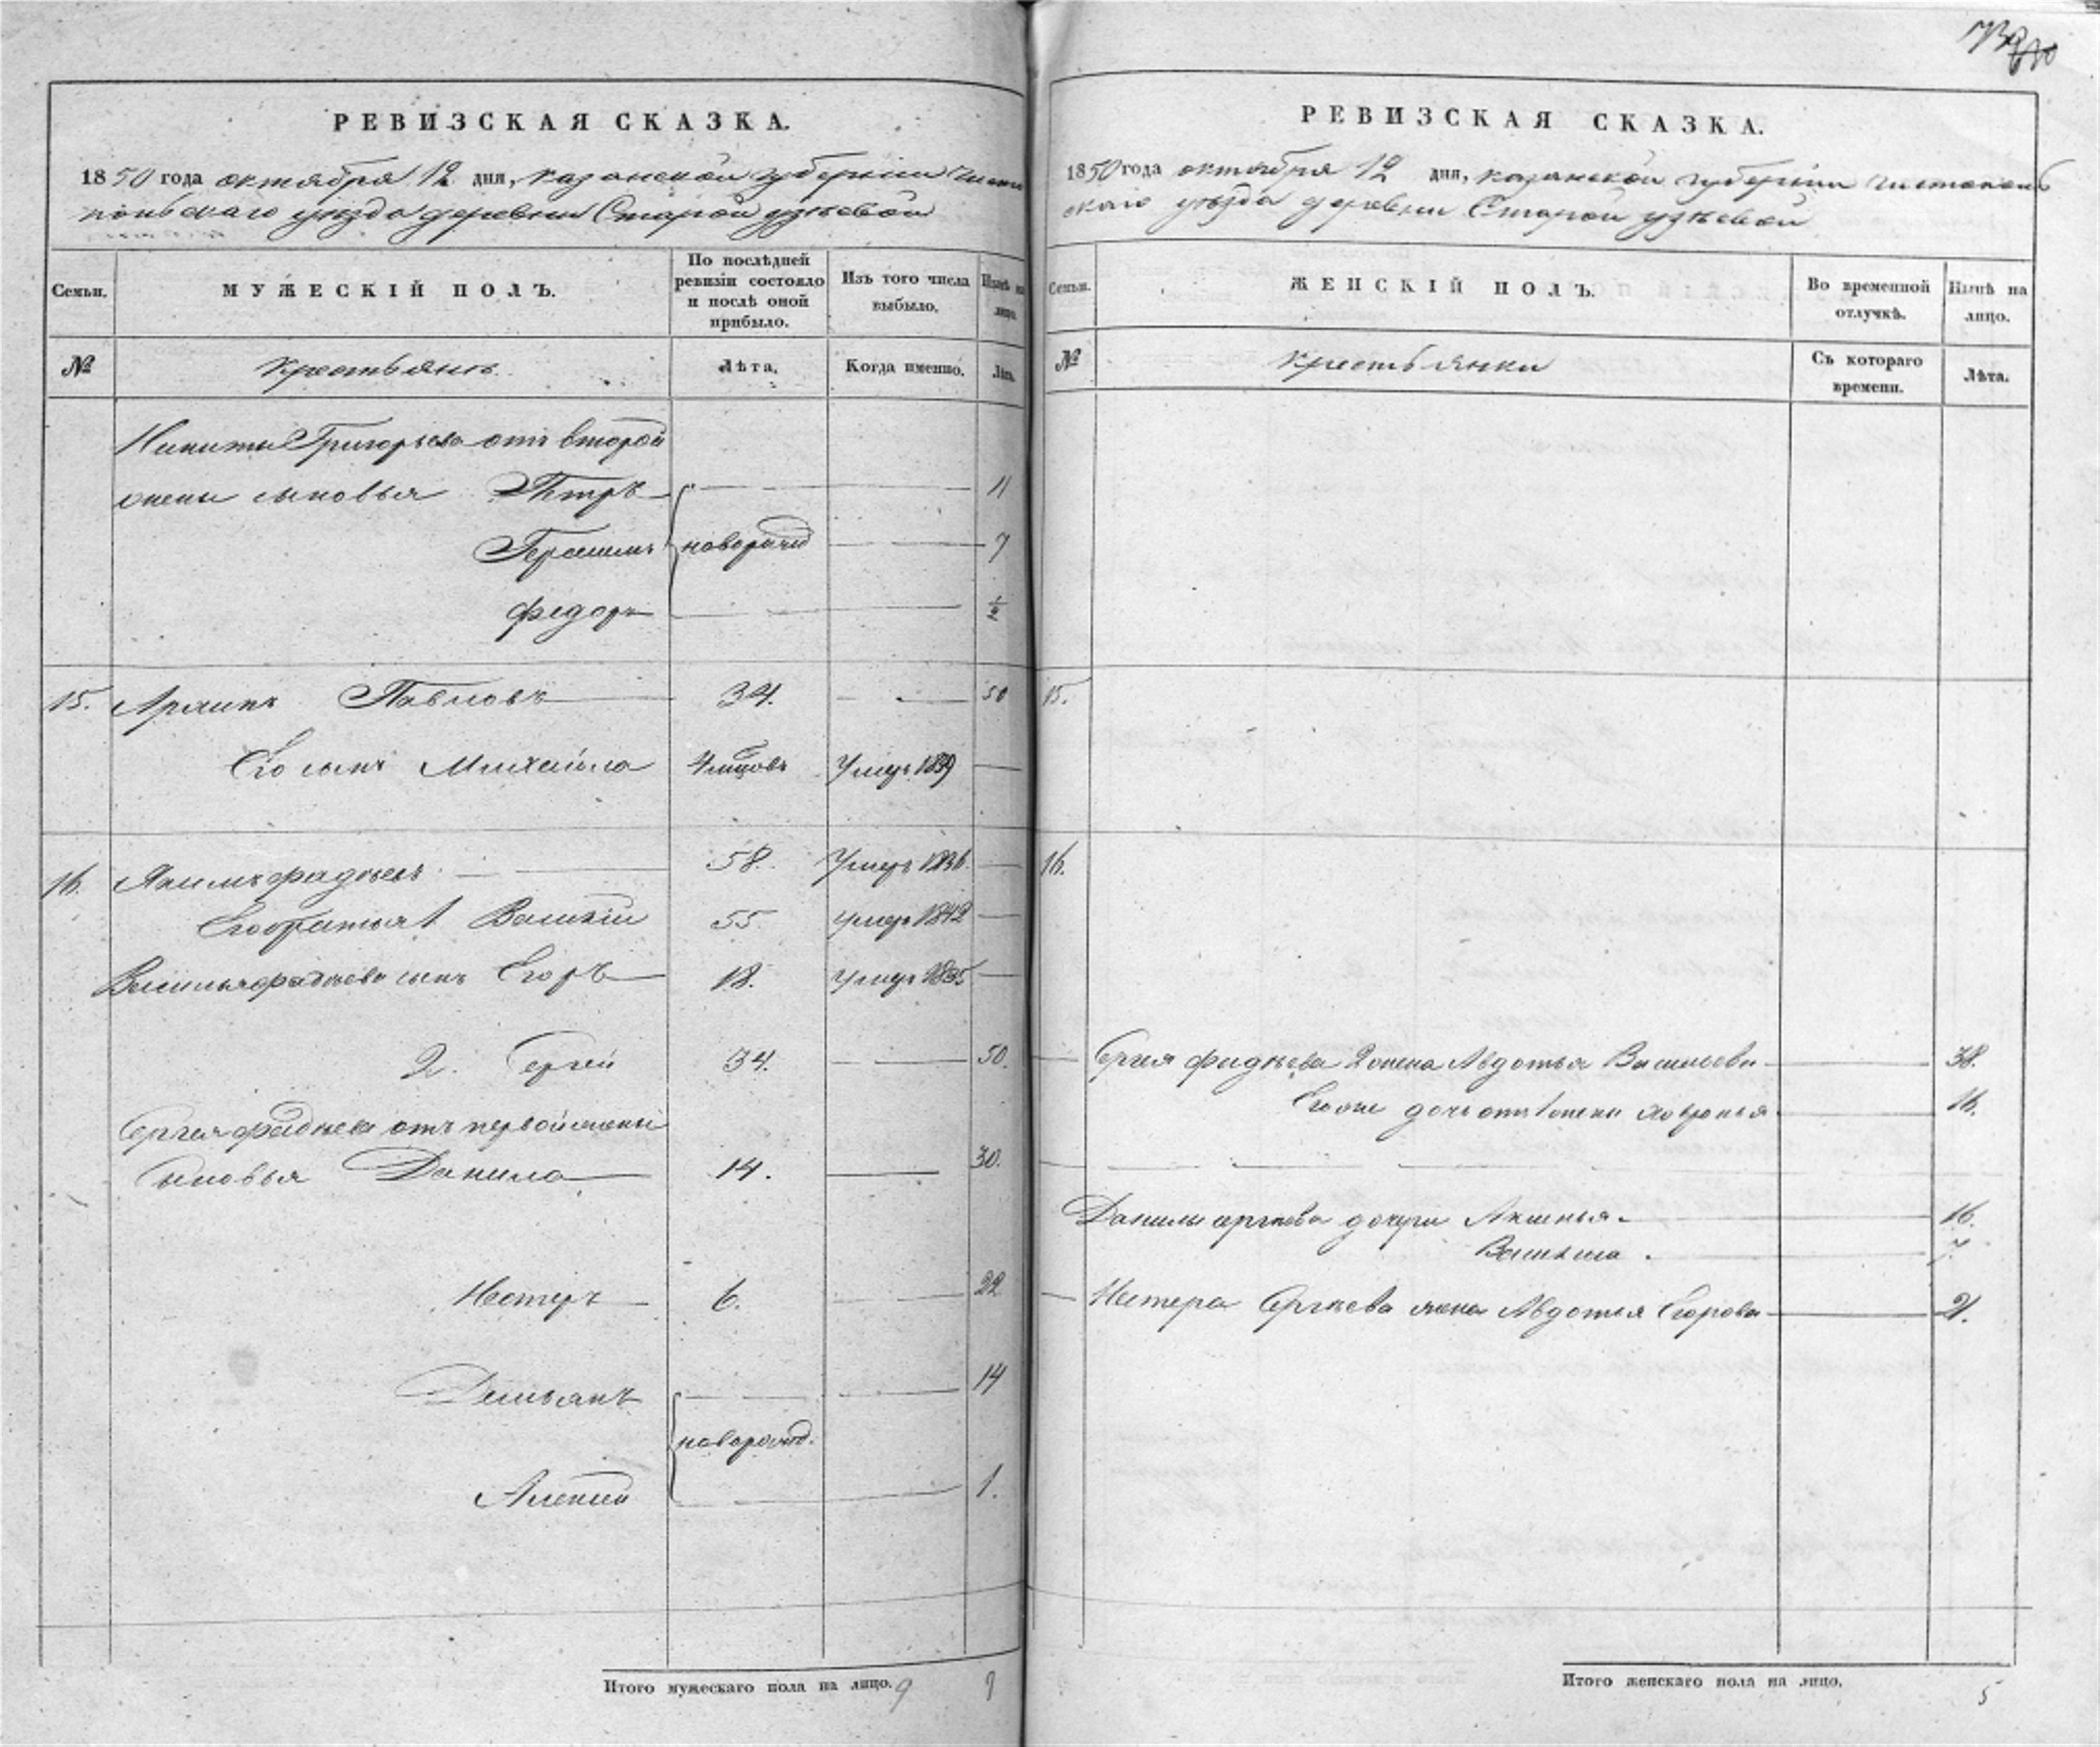 РЕВИЗСКАЯ СКАЗКА.
1850 года октября 12 дня, казанской губернии чисто
польскаго уезда деревни Старой узеевой
Семьи.
МУЖЕСКІЙ ПОЛЪ.
По послѣдней
ревизіи состояло
и послѣ оной
прибыло.
Изъ того числа
выбыло.
Нынѣ на
лицо.
№
крестьянъ
Лѣта.
Когда именно.
Лѣта.
Никиты Григорьева отъ второй
жены сыновья Петръ 11
Герасимъ новорожд 7
Федоръ 1/2
15. Павловъ 34. 50
Его сынъ Михайла 4 мцовъ Умеръ 1839
16. Якимъ Фадѣевъ 58. Умеръ 1836.
Его братья 1 Василій 55 умеръ 1842
Василья Фадѣева сынъ Егоръ 18. умеръ 1835
2. Сергей 34. 50.
Сергея Фадѣева отъ первой жены
сыновья Данила 14. 30.
Нестеръ 6. 22
Демьянъ 14
новорожд.
Алексей 1.
Итого мужескаго пола на лицо. 9 9
РЕВИЗСКАЯ СКАЗКА.
1850 года октября 12 дня, казанской губерніи чистополь
скаго уѣзда деревни Старой узѣевой
Семьи.
ЖЕНСКІЙ ПОЛЪ.
Во временной
отлучкѣ.
Нынѣ на
лицо.
№
крестьянки
Съ котораго
времени.
Лѣта.
15.
16.
Сергея Фадѣева 2 жена Авдотья Васильева 38.
Его же дочь отъ 1 жены 16.
Данилы Сергѣева дочери Аксинья 16.
Василиса 7.
Нестера Сергѣева жена Авдотья Егорова 21.
Итого женскаго пола на лицо. 5